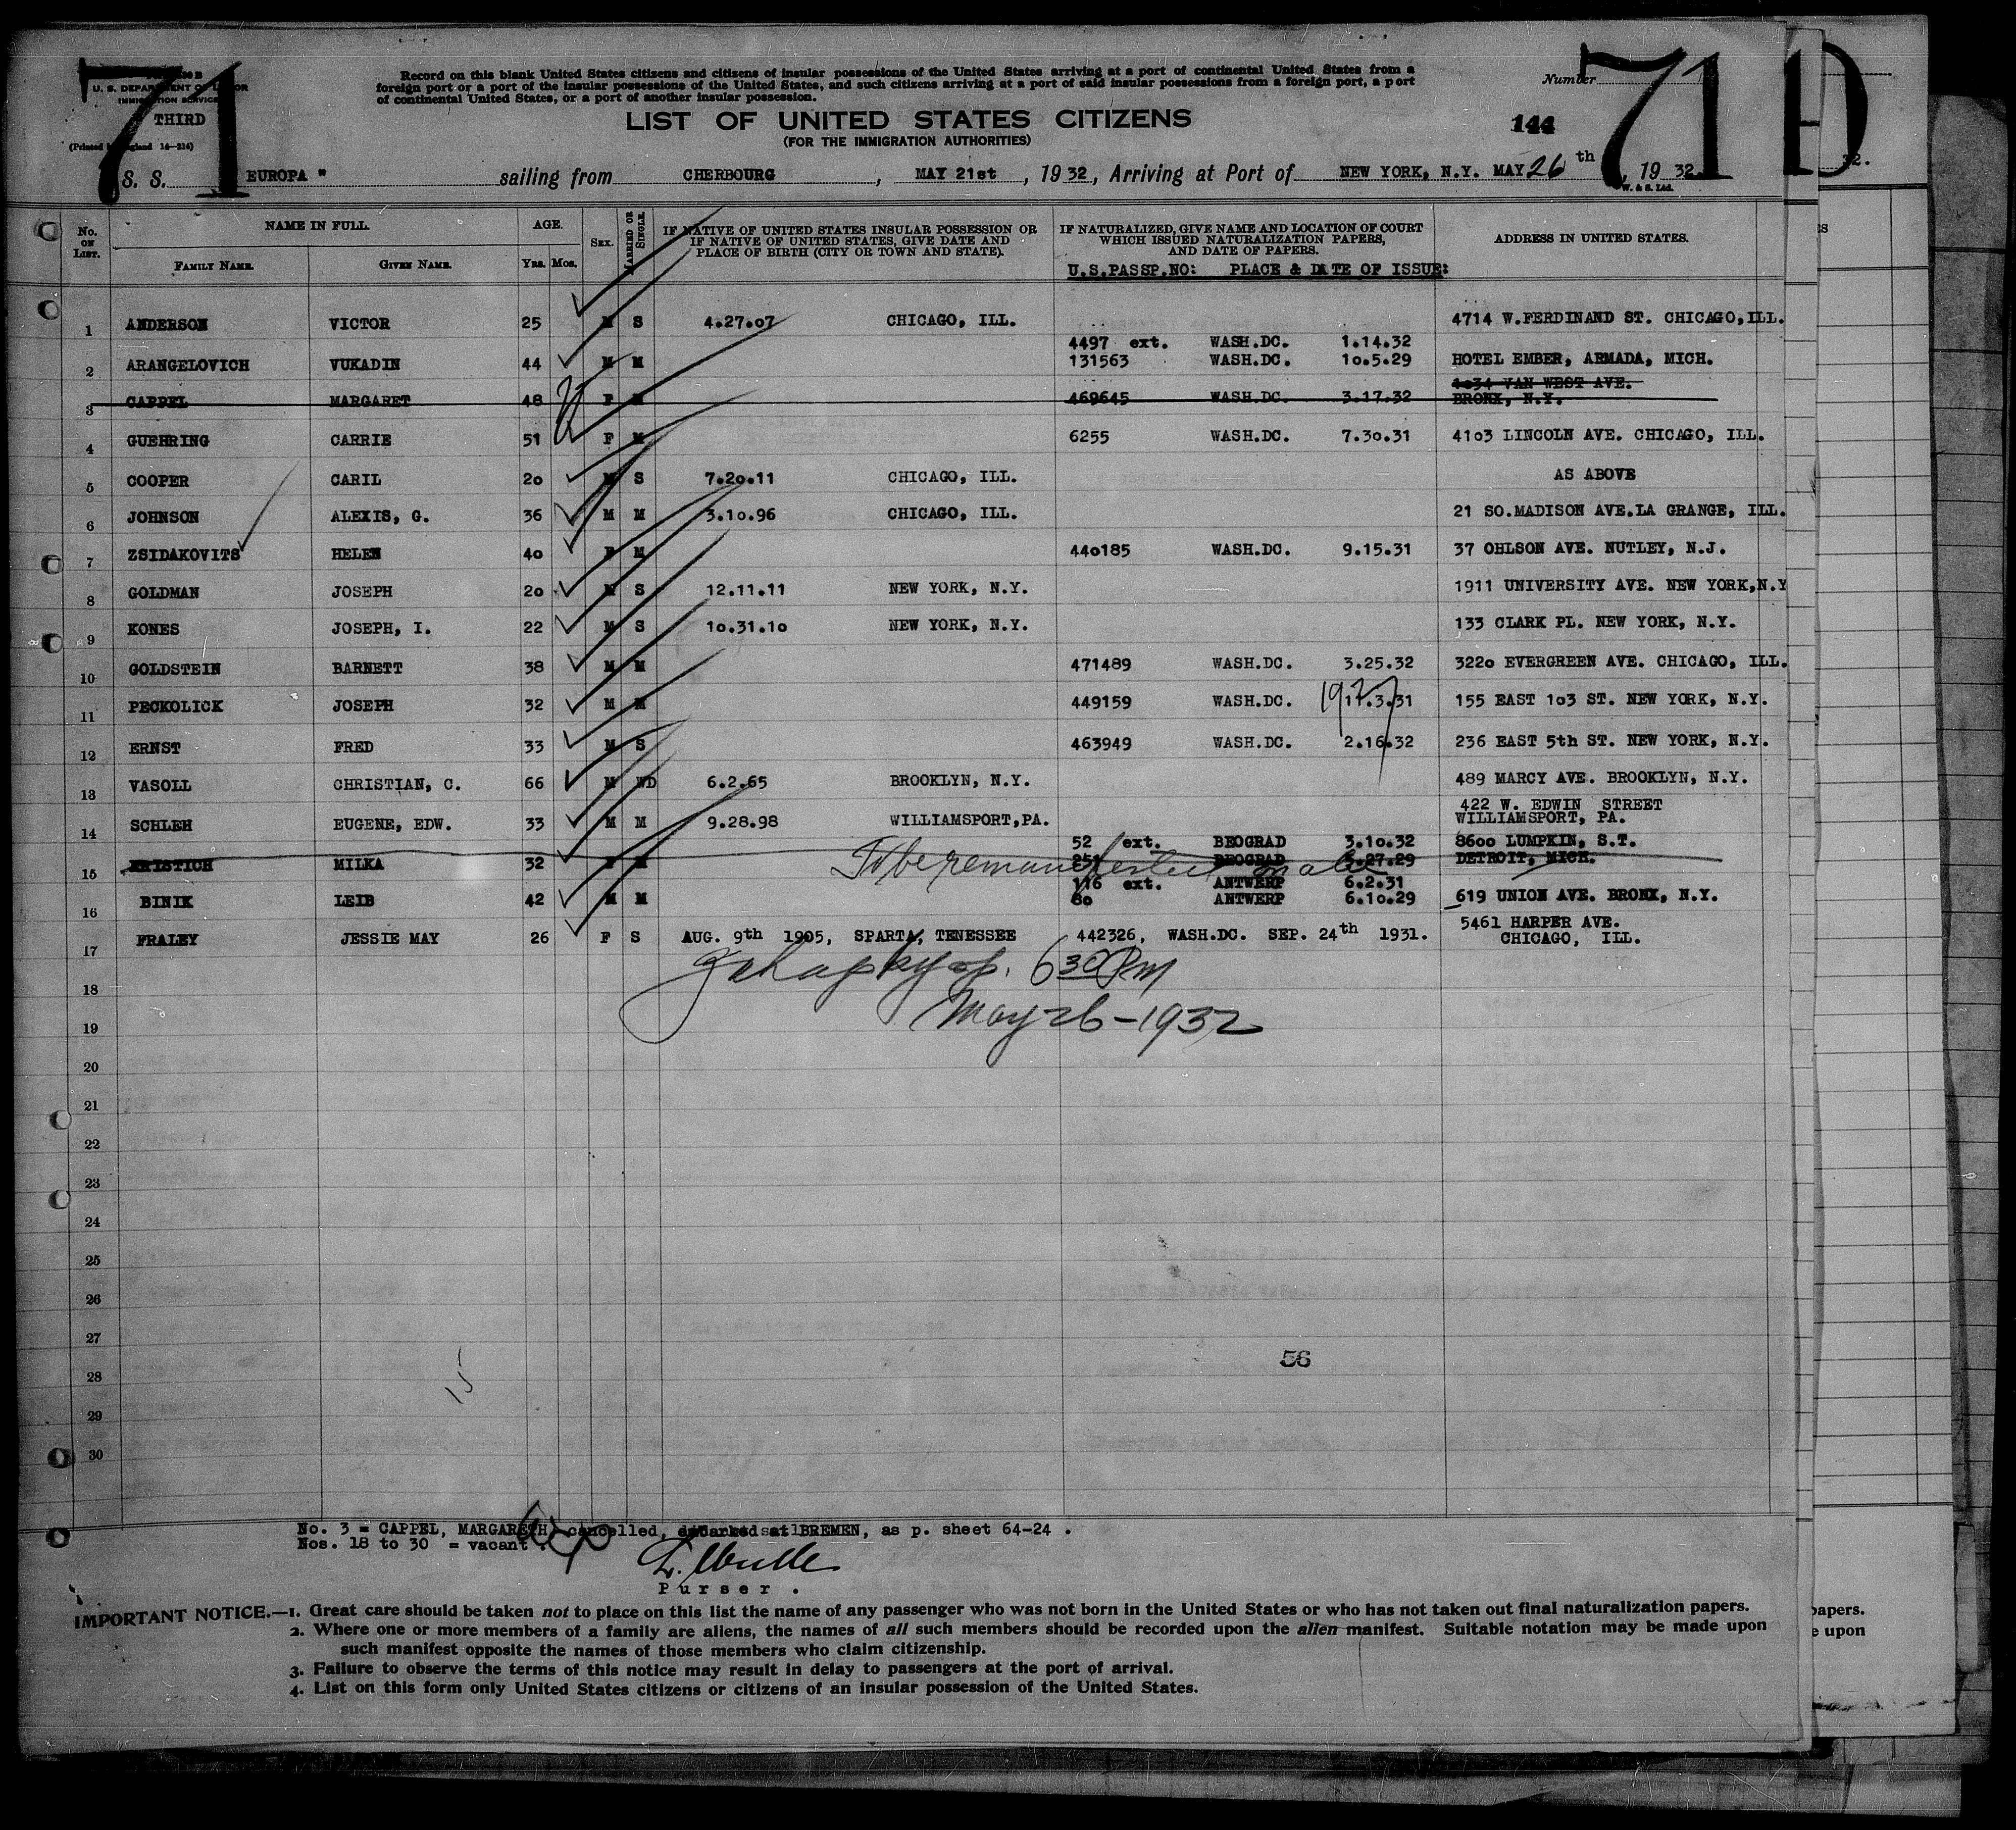 71
71
D
U. S. DEPARTMENT OF LABOR
IMMIGRATION SERVICE
THIRD
(Printed in England 14—214)
Record on this blank United States citizens and citizens of insular possessions of the United States arriving at a port of continental United States from a
foreign port or a port of the insular possessions of the United States, and such citizens arriving at a port of said insular possessions from a foreign port, a port
of continental United States, or a port of another insular possession.
Number
LIST OF UNITED STATES CITIZENS
(FOR THE IMMIGRATION AUTHORITIES)
144
S. S. EUROPA " sailing from CHERBOURG, MAY 21st, 1932, Arriving at Port of NEW YORK, N.Y. MAY 26th, 1932.
W. & S. Ltd.
No. ON LIST. NAME IN FULL. FAMILY NAME. GIVEN NAME. AGE. YRS. MOS. SEX. MARRIED OR SINGLE. IF NATIVE OF UNITED STATES INSULAR POSSESSION OR IF NATIVE OF UNITED STATES, GIVE DATE AND PLACE OF BIRTH (CITY OR TOWN AND STATE). IF NATURALIZED, GIVE NAME AND LOCATION OF COURT WHICH ISSUED NATURALIZATION PAPERS, AND DATE OF PAPERS. ADDRESS IN UNITED STATES.
U.S.PASSP.NO: PLACE & DATE OF ISSUE:
1 ANDERSON VICTOR 25 M S 4.27.07 CHICAGO, ILL. 4714 W.FERDINAND ST. CHICAGO,ILL.
4497 ext. WASH.DC. 1.14.32
2 ARANGELOVICH VUKADIN 44 M M 131563 WASH.DC. 10.5.29 HOTEL EMBER, ARMADA, MICH.
1034 VAN WEST AVE.
3 CAPPEL MARGARET 48 F M 469645 WASH.DC. 3.17.32 BRONX, N.Y.
4 GUEHRING CARRIE 51 F M 6255 WASH.DC. 7.30.31 4103 LINCOLN AVE. CHICAGO, ILL.
5 COOPER CARIL 20 M S 7.20.11 CHICAGO, ILL. AS ABOVE
6 JOHNSON ALEXIS, G. 36 M M 3.10.96 CHICAGO, ILL. 21 SO.MADISON AVE.LA GRANGE, ILL.
7 ZSIDAKOVITS HELEN 40 F M 440185 WASH.DC. 9.15.31 37 OHLSON AVE. NUTLEY, N.J.
8 GOLDMAN JOSEPH 20 M S 12.11.11 NEW YORK, N.Y. 1911 UNIVERSITY AVE. NEW YORK,N.Y
9 KONES JOSEPH, I. 22 M S 10.31.10 NEW YORK, N.Y. 133 CLARK PL. NEW YORK, N.Y.
10 GOLDSTEIN BARNETT 38 M M 471489 WASH.DC. 3.25.32 3220 EVERGREEN AVE. CHICAGO, ILL.
11 PECKOLICK JOSEPH 32 M M 449159 WASH.DC. 11.3.31 155 EAST 103 ST. NEW YORK, N.Y.
12 ERNST FRED 33 M S 463949 WASH.DC. 2.16.32 236 EAST 5th ST. NEW YORK, N.Y.
13 VASOLL CHRISTIAN, C. 66 M WD 6.2.65 BROOKLYN, N.Y. 489 MARCY AVE. BROOKLYN, N.Y.
422 W. EDWIN STREET
14 SCHLEH EUGENE, EDW. 33 M M 9.28.98 WILLIAMSPORT,PA. WILLIAMSPORT, PA.
52 ext. BEOGRAD 3.10.32 8600 LUMPKIN, S.T.
15 KRISTICH MILKA 32 F M BEOGRAD 3.27.29 DETROIT, MICH.
To be remanifested
116 ext. ANTWERP 6.2.31
16 BINIK LEIB 42 M M 80 ANTWERP 6.10.29 619 UNION AVE. BRONX, N.Y.
5461 HARPER AVE.
17 FRALEY JESSIE MAY 26 F S AUG. 9th 1905, SPARTA, TENESSEE 442326, WASH.DC. SEP. 24th 1931. CHICAGO, ILL.
630 PM
18
May 26-1932
19
20
21
22
23
24
25
26
27
56
28
15
29
30
No. 3 = CAPPEL, MARGARETH cancelled, BREMEN, as p. sheet 64-24 .
Nos. 18 to 30 = vacant .
Purser .
IMPORTANT NOTICE.—1. Great care should be taken not to place on this list the name of any passenger who was not born in the United States or who has not taken out final naturalization papers.
2. Where one or more members of a family are aliens, the names of all such members should be recorded upon the alien manifest. Suitable notation may be made upon
such manifest opposite the names of those members who claim citizenship.
3. Failure to observe the terms of this notice may result in delay to passengers at the port of arrival.
4. List on this form only United States citizens or citizens of an insular possession of the United States.
papers.
upon